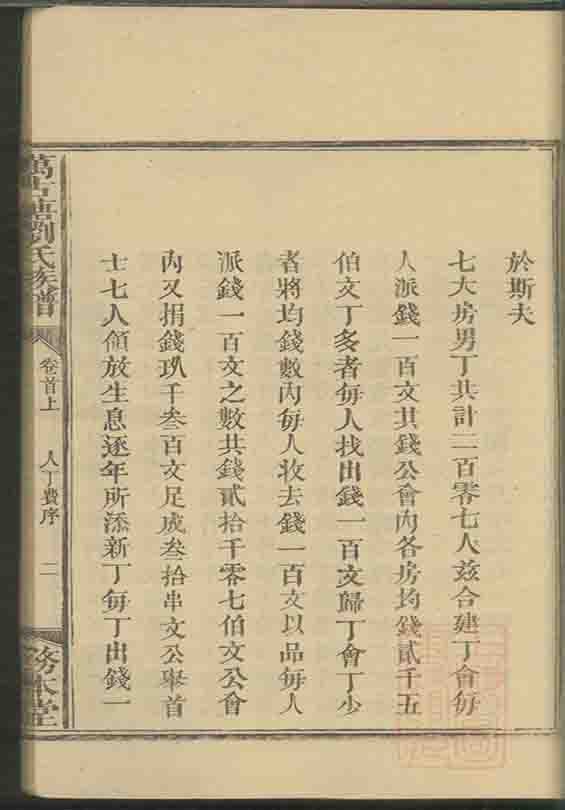 於斯夫
七大房男丁共計二百零七人兹合建丁會每
人派錢一百文其錢公會內各房均錢貳千五
伯文丁多者每人找出錢一百文歸丁會丁少
者將均錢數內每人收去錢一百文以品每人
派錢一百文之數共錢貳拾千零七伯文公會
內又捐錢玖千叁百文足成叁拾串文公舉首
士七人領放生息逐年所添新丁每丁出錢一
萬古塘劉氏族譜
卷首上
人丁費序
二
務本堂